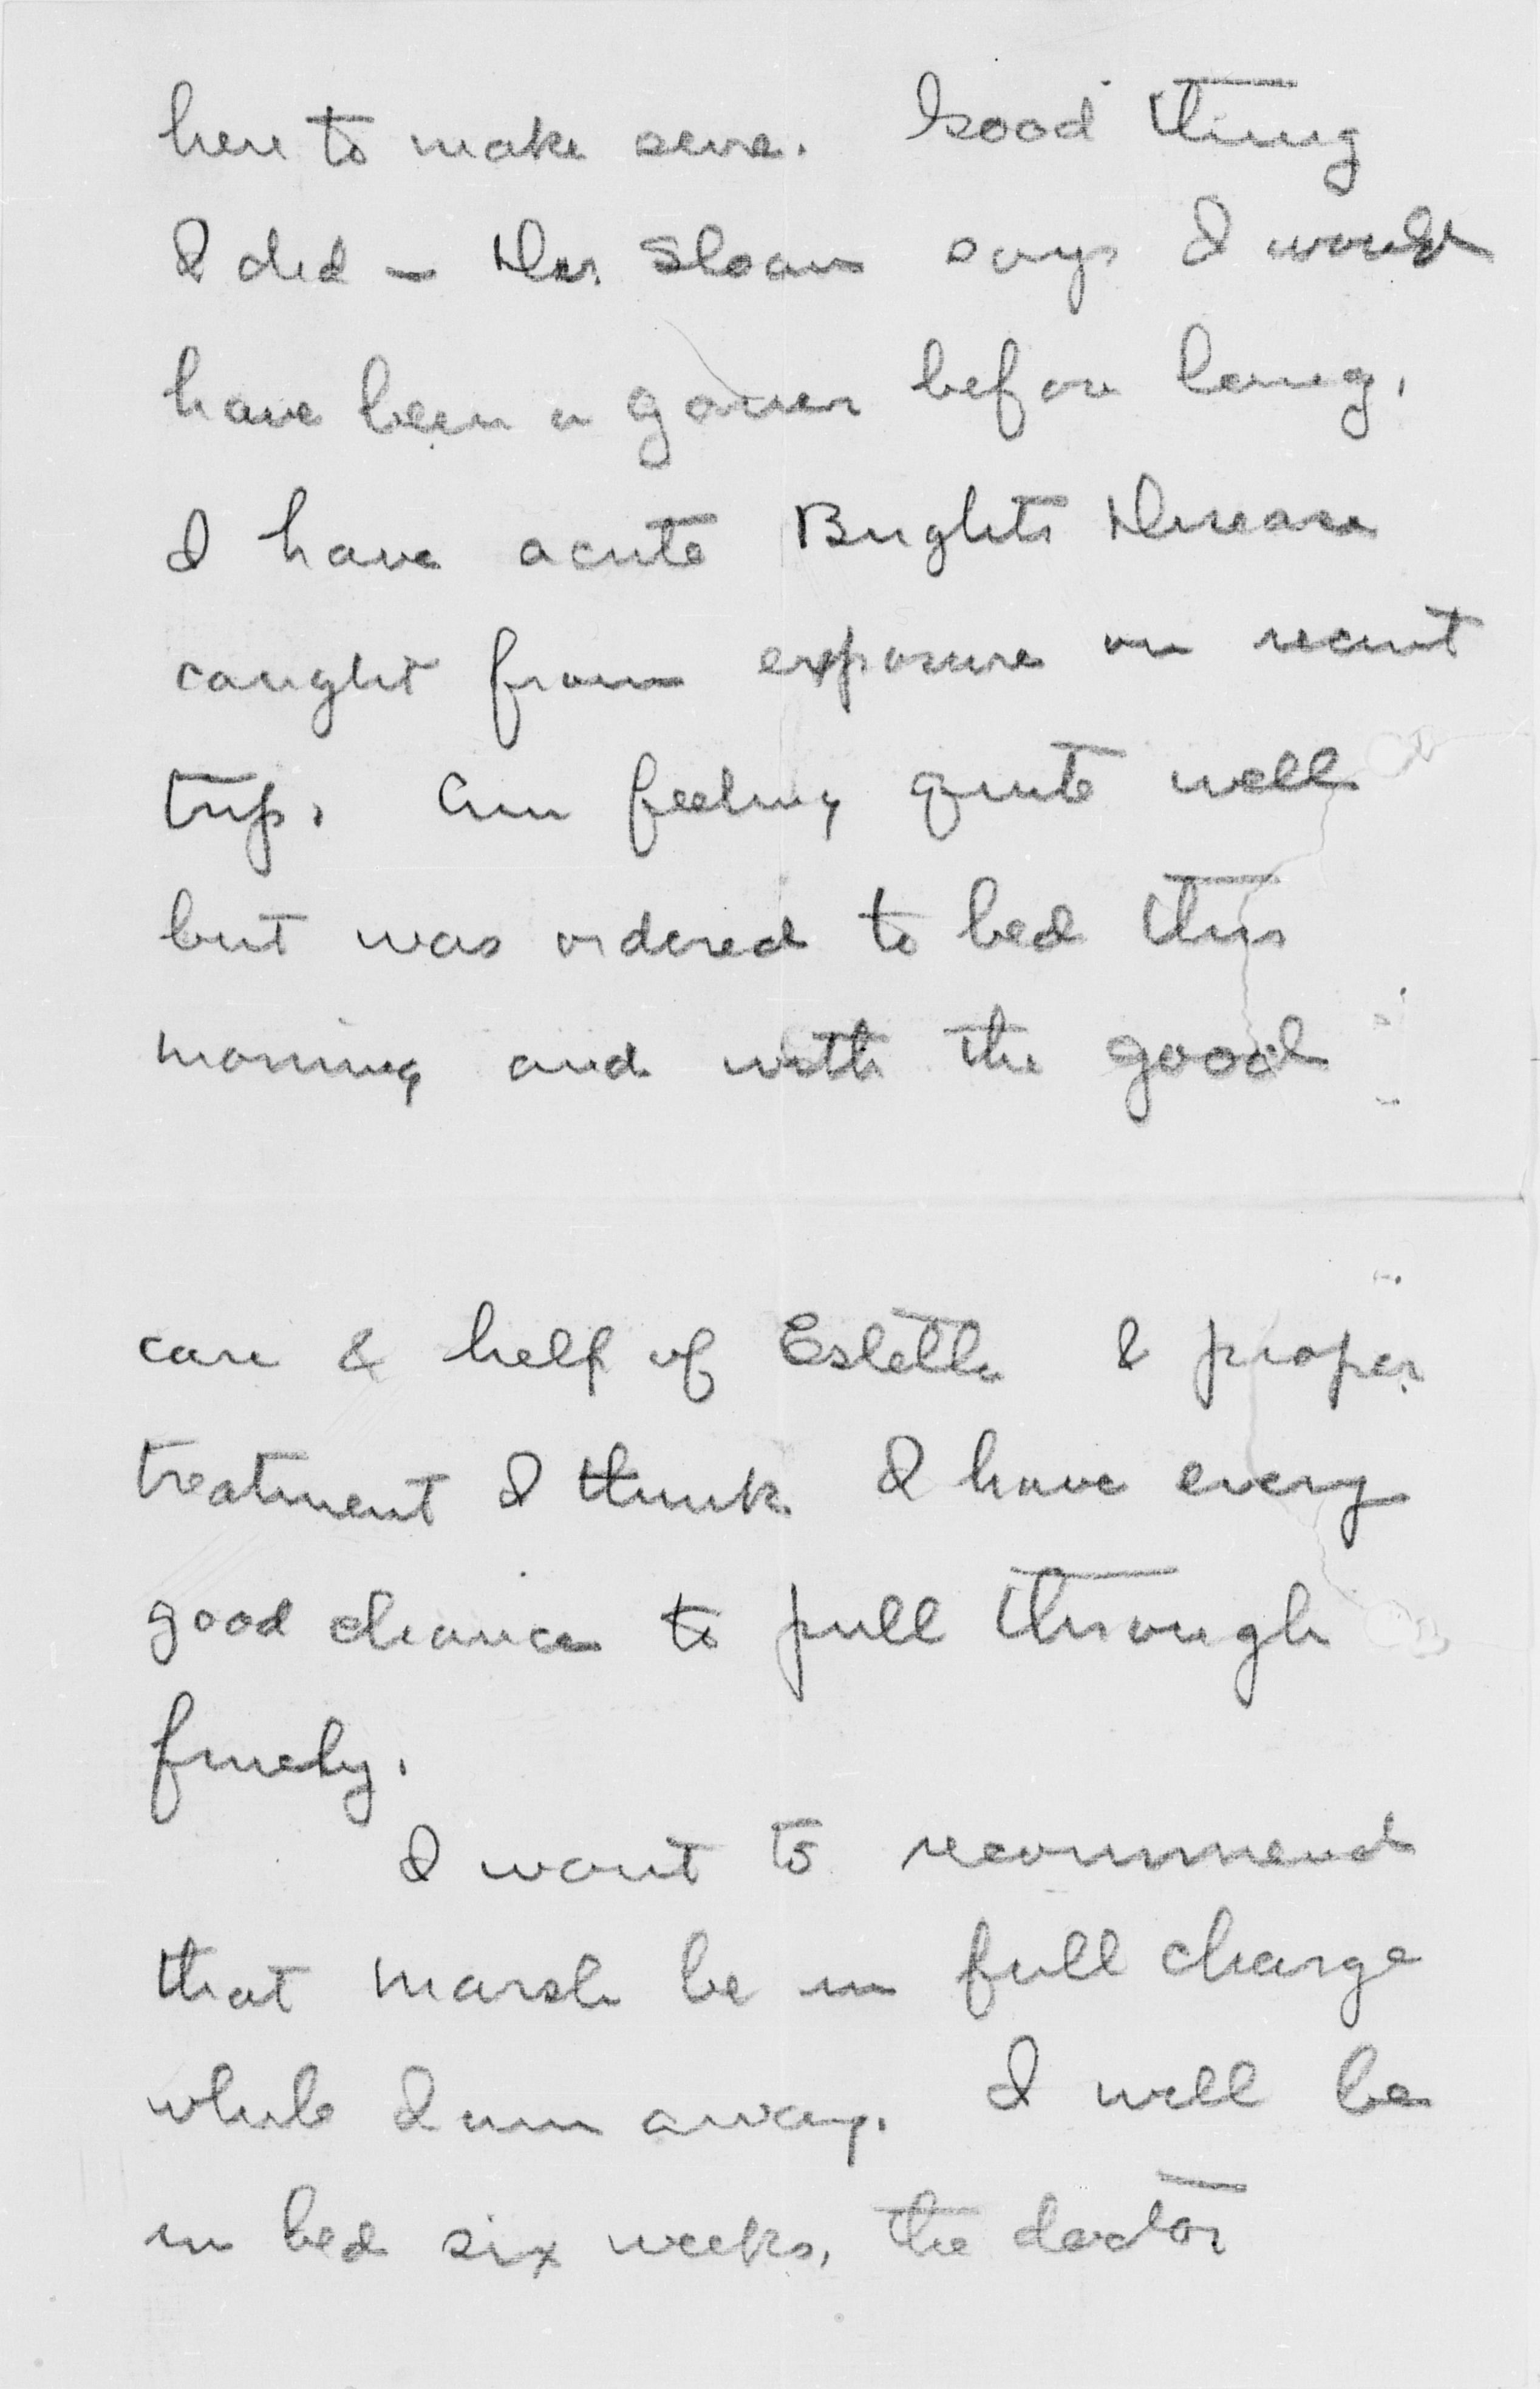 here to make sure. Good thing
I did – Dr. Sloan says I would
have been a goner before long.
I have acute Brights Disease
caught from exposure on recent
trip. Am feeling quite well
but was ordered to bed this
morning and with the good
care & help of Estella & proper
treatment I think I have every
good chance to pull through
finely.
I want to recommend
that Marsh be in full charge
while I am away. I will be
in bed six weeks, the doctor